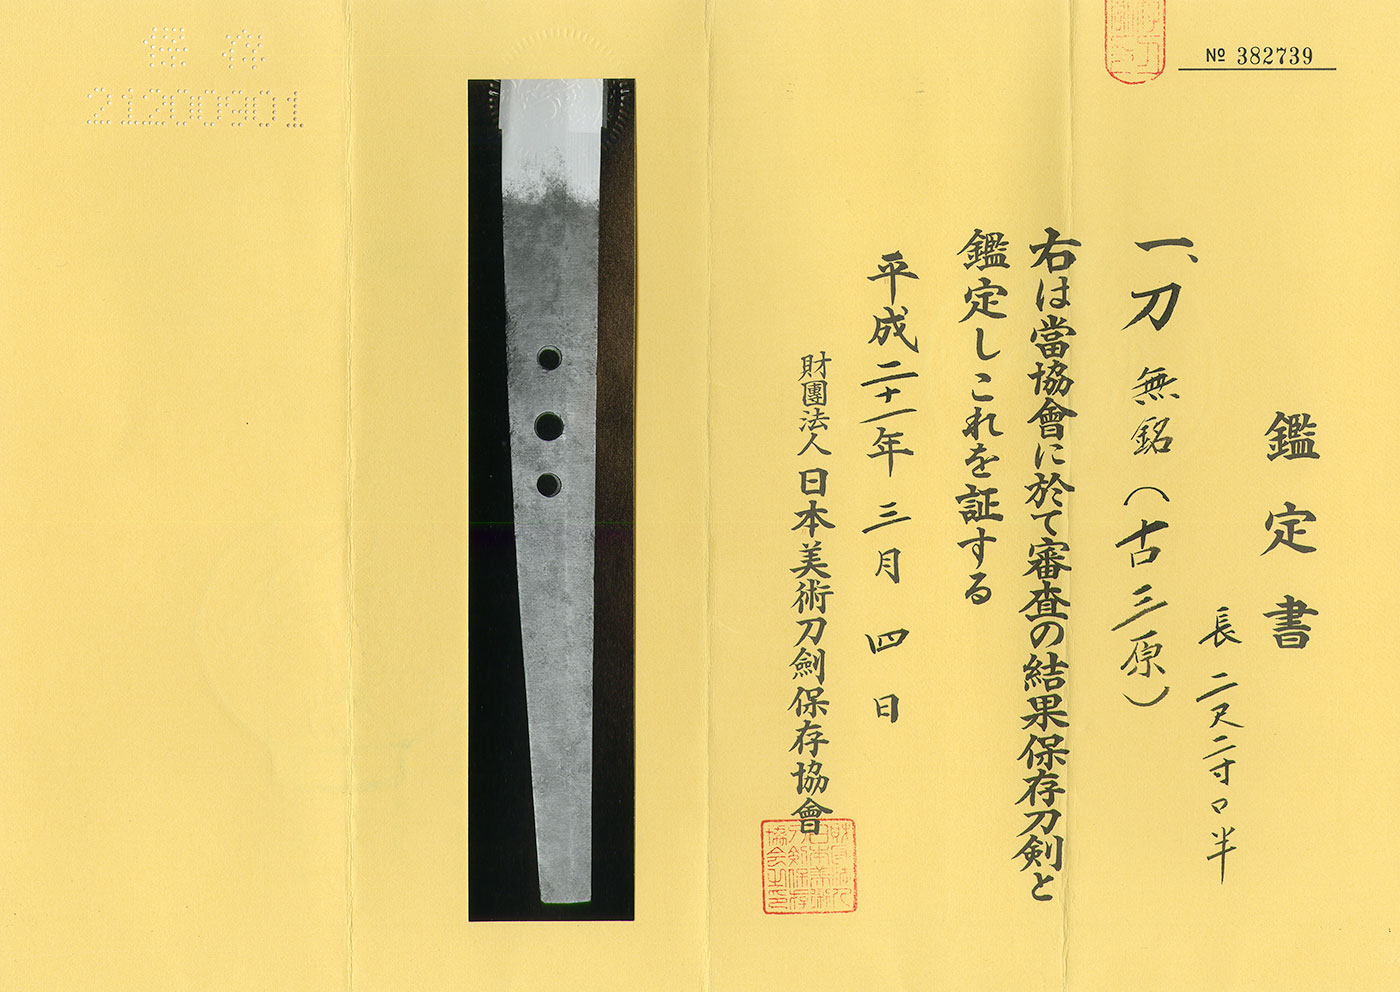 № 382739
鑑定書
長 二尺二寸口半
一、刀 無銘(古三原)
右は當協會に於て審査の結果保存刀剣と
鑑定しこれを証する
平成二十一年 三月 四日
財團法人 日本美術刀劍保存協會
保存
21200901